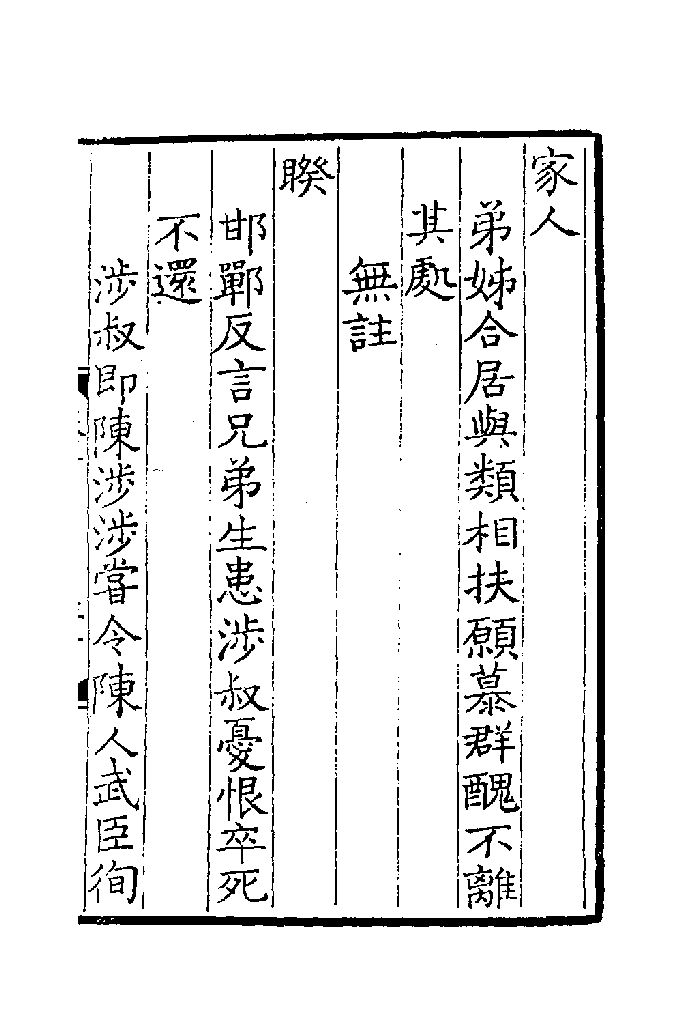 家人
弟姊合居與類相扶願慕群醜不離
其處
無註
睽
邯鄲反言兄弟生患涉叔憂恨卒死
不還
涉叔即陳涉涉嘗令陳人武臣徇